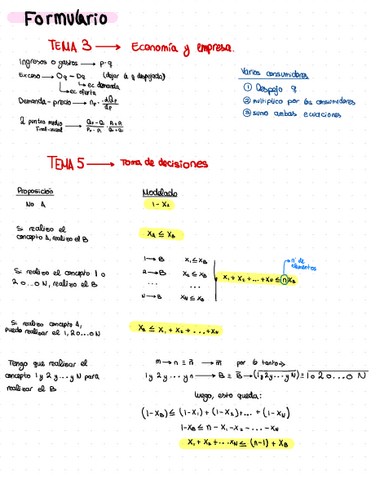 Formulario
TEMA 3 → Economía y empresa.
Ingresos o gastos → p·q
Exceso → Oq - Dq (dejar a q despejada)
ec demanda
ec oferta
Demanda - precio →
2 puntos medio
Final-inicial
Varios consumidores
① Despejo q
② multiplico por los consumidores
③ sumo ambas ecuaciones
TEMA 5 → Toma de decisiones
Proposición Modelado
No A 1 - XA
Si realizo el
concepto A, realizo el B
XA ≤ XB
Si realizo el concepto 1 o
2 o...o N, realizo el B
1 → B X1 ≤ XB
2 → B X2 ≤ XB
... ...
N → B XN ≤ XB
X1 + X2 + ... + XN ≤ n XB
nº de
elementos
Si realizo concepto A,
puedo realizar el 1, 2 o...o N
XA ≤ X1 + X2 + ... + XN
Tengo que realizar el
concepto 1 y 2 y ... y N para
realizar el B
m → n = n̅ → m̅ por lo tanto →
1 y 2 y ... y n → B = B̅ → (1 y 2 y ... y N) = 1 o 2 o ... o N
luego, esto queda:
(1-XB) ≤ (1-X1) + (1-X2) + ... + (1-XN)
1-XB ≤ n - X1 - X2 - ... - XN
X1 + X2 + ... XN ≤ (n-1) + XB